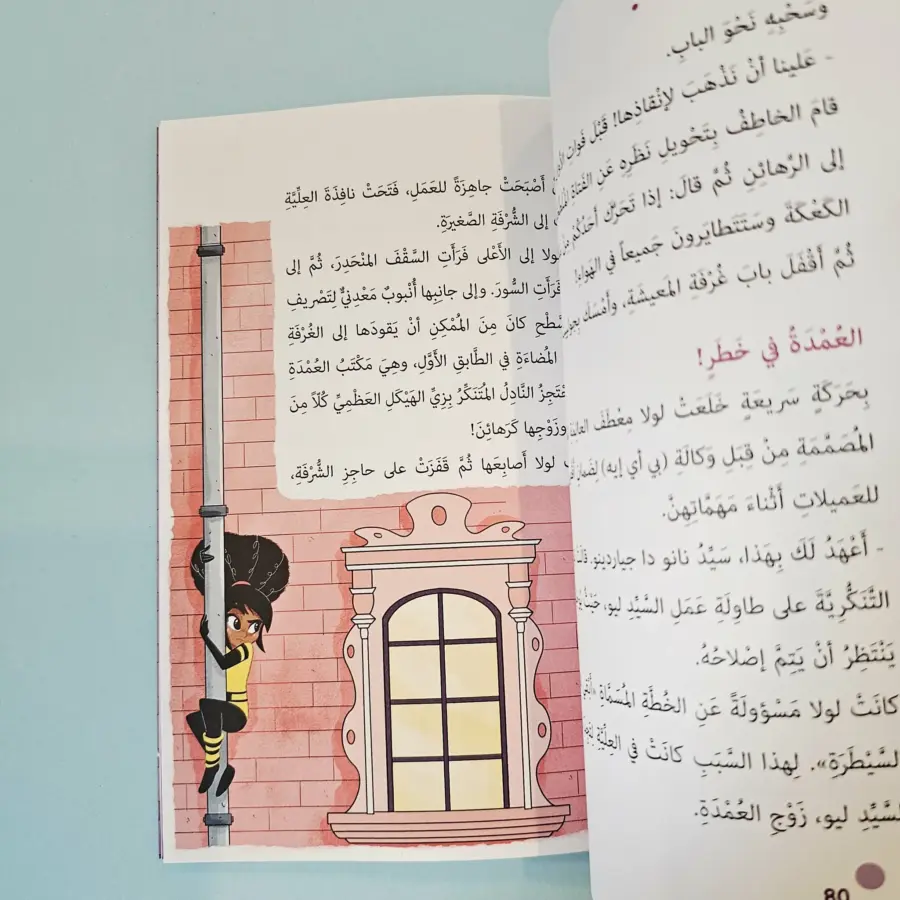 وَسَحْبِهِ نَحْوَ البابِ.
- عَلَينا أنْ نَذْهَبَ لإنْقاذِها! قَبْلَ فَواتِ
قامَ الخاطِفُ بِتَحْويلِ نَظَرِهِ عَنِ الفَتاةِ
إلى الرَّهائِنِ ثُمَّ قالَ: إذا تَحَرَّكَ أَحَدُكُمْ
الكَعْكَةَ وسَتَتَطايَرونَ جَميعاً في الهَواءِ!
ثُمَّ أقْفَلَ بابَ غُرْفَةِ المَعيشَةِ، وأمْسَكَ
العُمْدَةُ في خَطَرٍ!
بِحَرَكَةٍ سَريعَةٍ خَلَعَتْ لولا مِعْطَفَ
المُصَمَّمَةِ مِنْ قِبَلِ وَكالَةِ (بي أي إيه)
للعَميلاتِ أثْناءَ مَهَمَّاتِهِنَّ.
- أعْهَدُ لَكَ بِهَذا، سَيِّدُ نانو دا جياردينو.
التَّنَكُّرِيَّةَ على طاوِلَةِ عَمَلِ السَّيِّدِ ليو،
يَنْتَظِرُ أنْ يَتِمَّ إصْلاحُهُ.
كانَتْ لولا مَسْؤولَةً عَنِ الخُطَّةِ المُسَمَّاةِ
السَّيْطَرَةِ». لِهذا السَّبَبِ كانَتْ في العِلِّيَّةِ
السَّيِّدِ ليو، زَوْجِ العُمْدَةِ.
80
أصْبَحَتْ جاهِزَةً للعَمَلِ، فَتَحَتْ نافِذَةَ العِلِّيَّةِ
إلى الشُّرْفَةِ الصَّغيرَةِ.
لولا إلى الأعْلى فَرَأتِ السَّقْفَ المُنْحَدِرَ، ثُمَّ إلى
فَرَأتِ السُّورَ. وإلى جانِبِها أُنْبوبٌ مَعْدِنِيٌّ لِتَصْريفِ
كانَ مِنَ المُمْكِنِ أنْ يَقودَها إلى الغُرْفَةِ
المُضاءَةِ في الطَّابِقِ الأوَّلِ، وهِيَ مَكْتَبُ العُمْدَةِ
النَّادِلُ المُتَنَكِّرُ بِزِيِّ الهَيْكَلِ العَظْمِيِّ كُلّاً مِنَ
وزَوْجِها كَرَهائِنَ!
لولا أصابِعَها ثُمَّ قَفَزَتْ على حاجِزِ الشُّرْفَةِ،